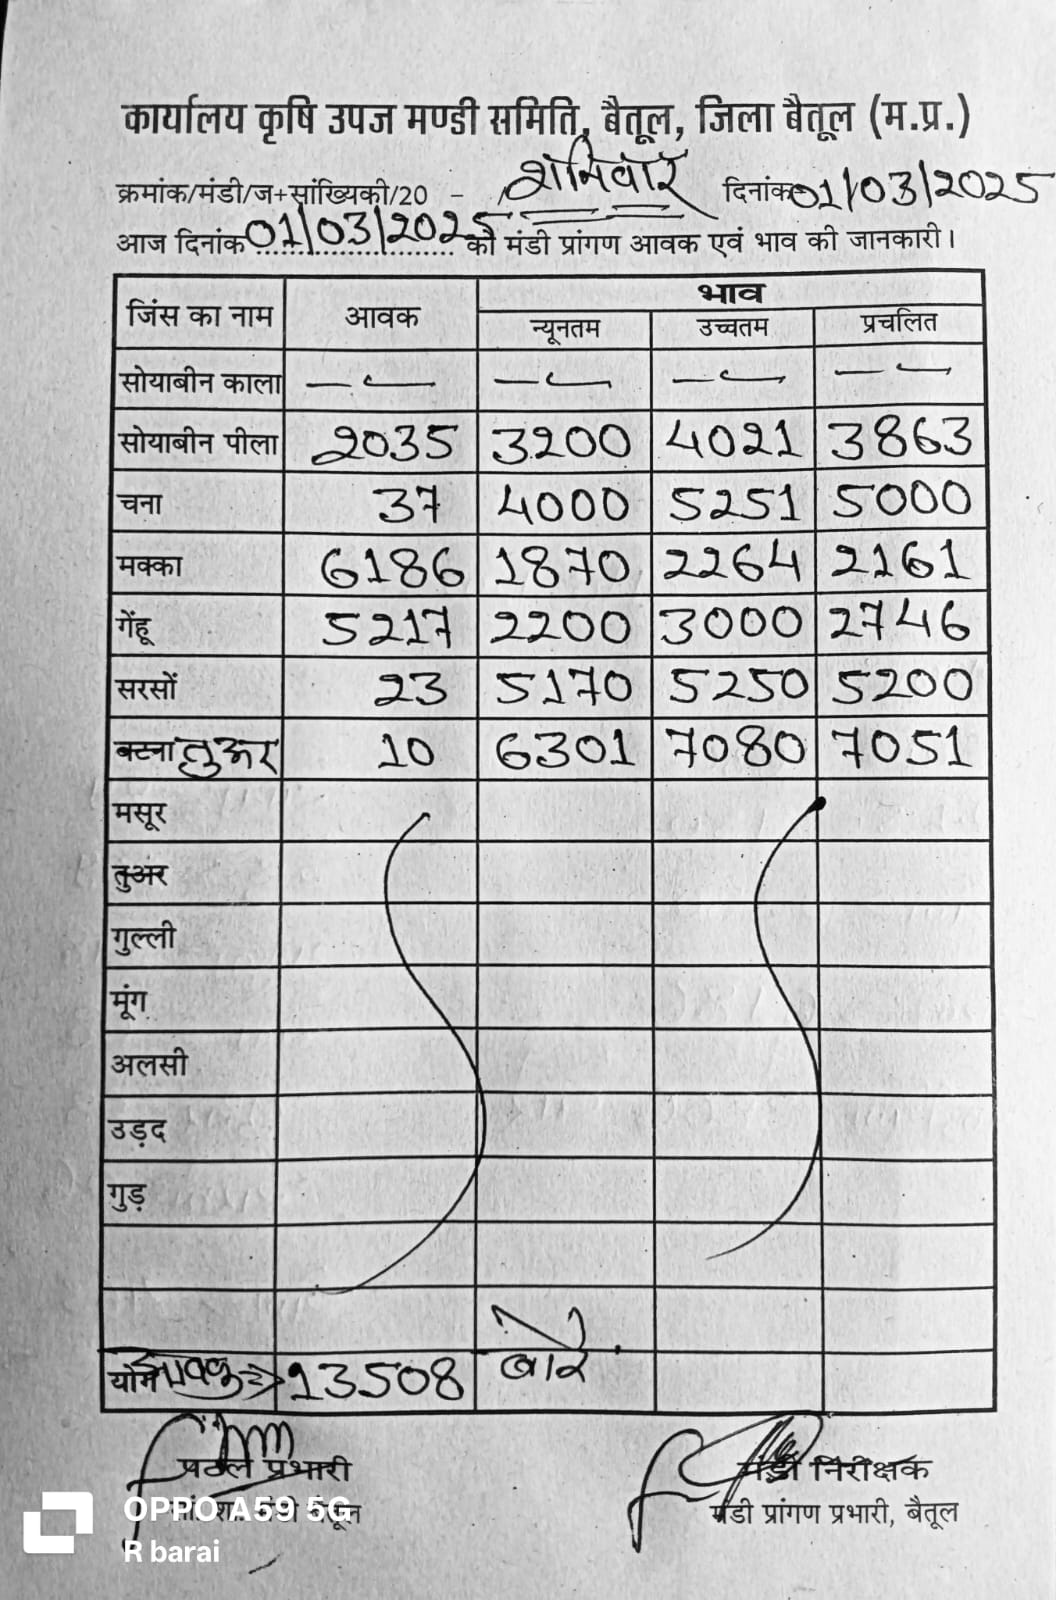 कार्यालय कृषि उपज मण्डी समिति, बैतूल, जिला बैतूल (म.प्र.)
क्रमांक/मंडी/ज+सांख्यिकी/20 - शनिवार दिनांक 01/03/2025
आज दिनांक 01/03/2025 की मंडी प्रांगण आवक एवं भाव की जानकारी।
जिंस का नाम आवक भाव
न्यूनतम उच्चतम प्रचलित
सोयाबीन काला — — — —
सोयाबीन पीला 2035 3200 4021 3863
चना 37 4000 5251 5000
मक्का 6186 1870 2264 2161
गेंहू 5217 2200 3000 2746
सरसों 23 5170 5250 5200
बटना तुअर 10 6301 7080 7051
मसूर
तुअर
गुल्ली
मूंग
अलसी
उड़द
गुड़
योग आवक => 13508 बोरे
प्रभारी मंडी निरीक्षक
बैतूल मंडी प्रांगण प्रभारी, बैतूल
OPPO A59 5G
R barai